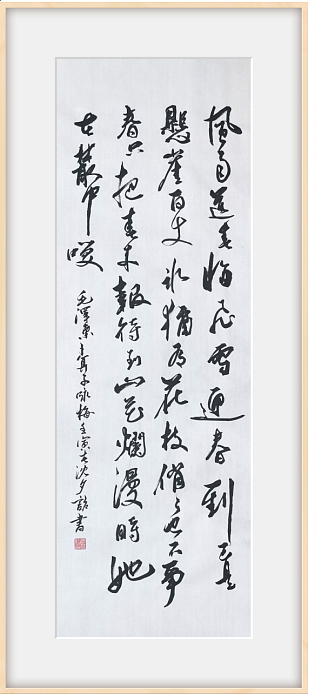 風雨送春歸飛雪迎春到已是
懸崖百丈冰猶有花枝俏々也不爭
春只把春來報待到山花爛漫時她
在叢中咲
毛澤東卜算子咏梅壬寅春沈夕書